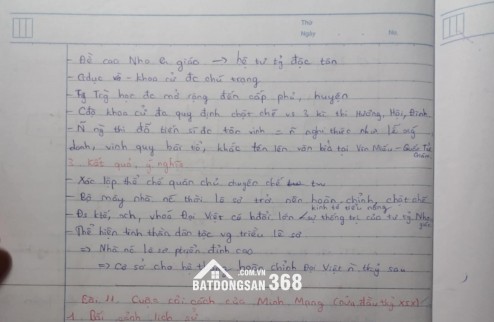 Thứ
Ngày No.
- Đề cao Nho giáo → hệ tư tg độc tôn
- Gdục - khoa cử đc chú trọng
- Tg Tcg học đc mở rộng đến cấp phủ, huyện
- Cđộ khoa cử đc quy định chặt chẽ vs 3 kì thi Hương, Hội, Đình
- N ng thi đỗ tiến sĩ đc tôn vinh = n nghi thức như lễ xg
danh, vinh quy bái tổ, khắc tên lên văn bia tại Văn Miếu - Quốc Tử Giám
3. Kết quả, ý nghĩa
- Xác lập thể chế quân chủ chuyên chế tw
- Bộ máy nhà nc thời lê sơ trở nên hoàn chỉnh, chặt chẽ
- Đs ktế, xh, vhoá Đại Việt có bđổi lớn thống trị của tư tg Nho giáo
- Thể hiện tinh thần dân tộc vg triều lê sơ
⇒ Nhà nc lê sơ pt đỉnh cao
⇒ Cơ sở cho hệ chỉnh Đại Việt n thkỷ sau
BATDONGSAN368
.COM.VN
Bài 11. Cuộc cải cách của Minh Mạng (nửa đầu tk XIX)
1. Bối cảnh lịch sử